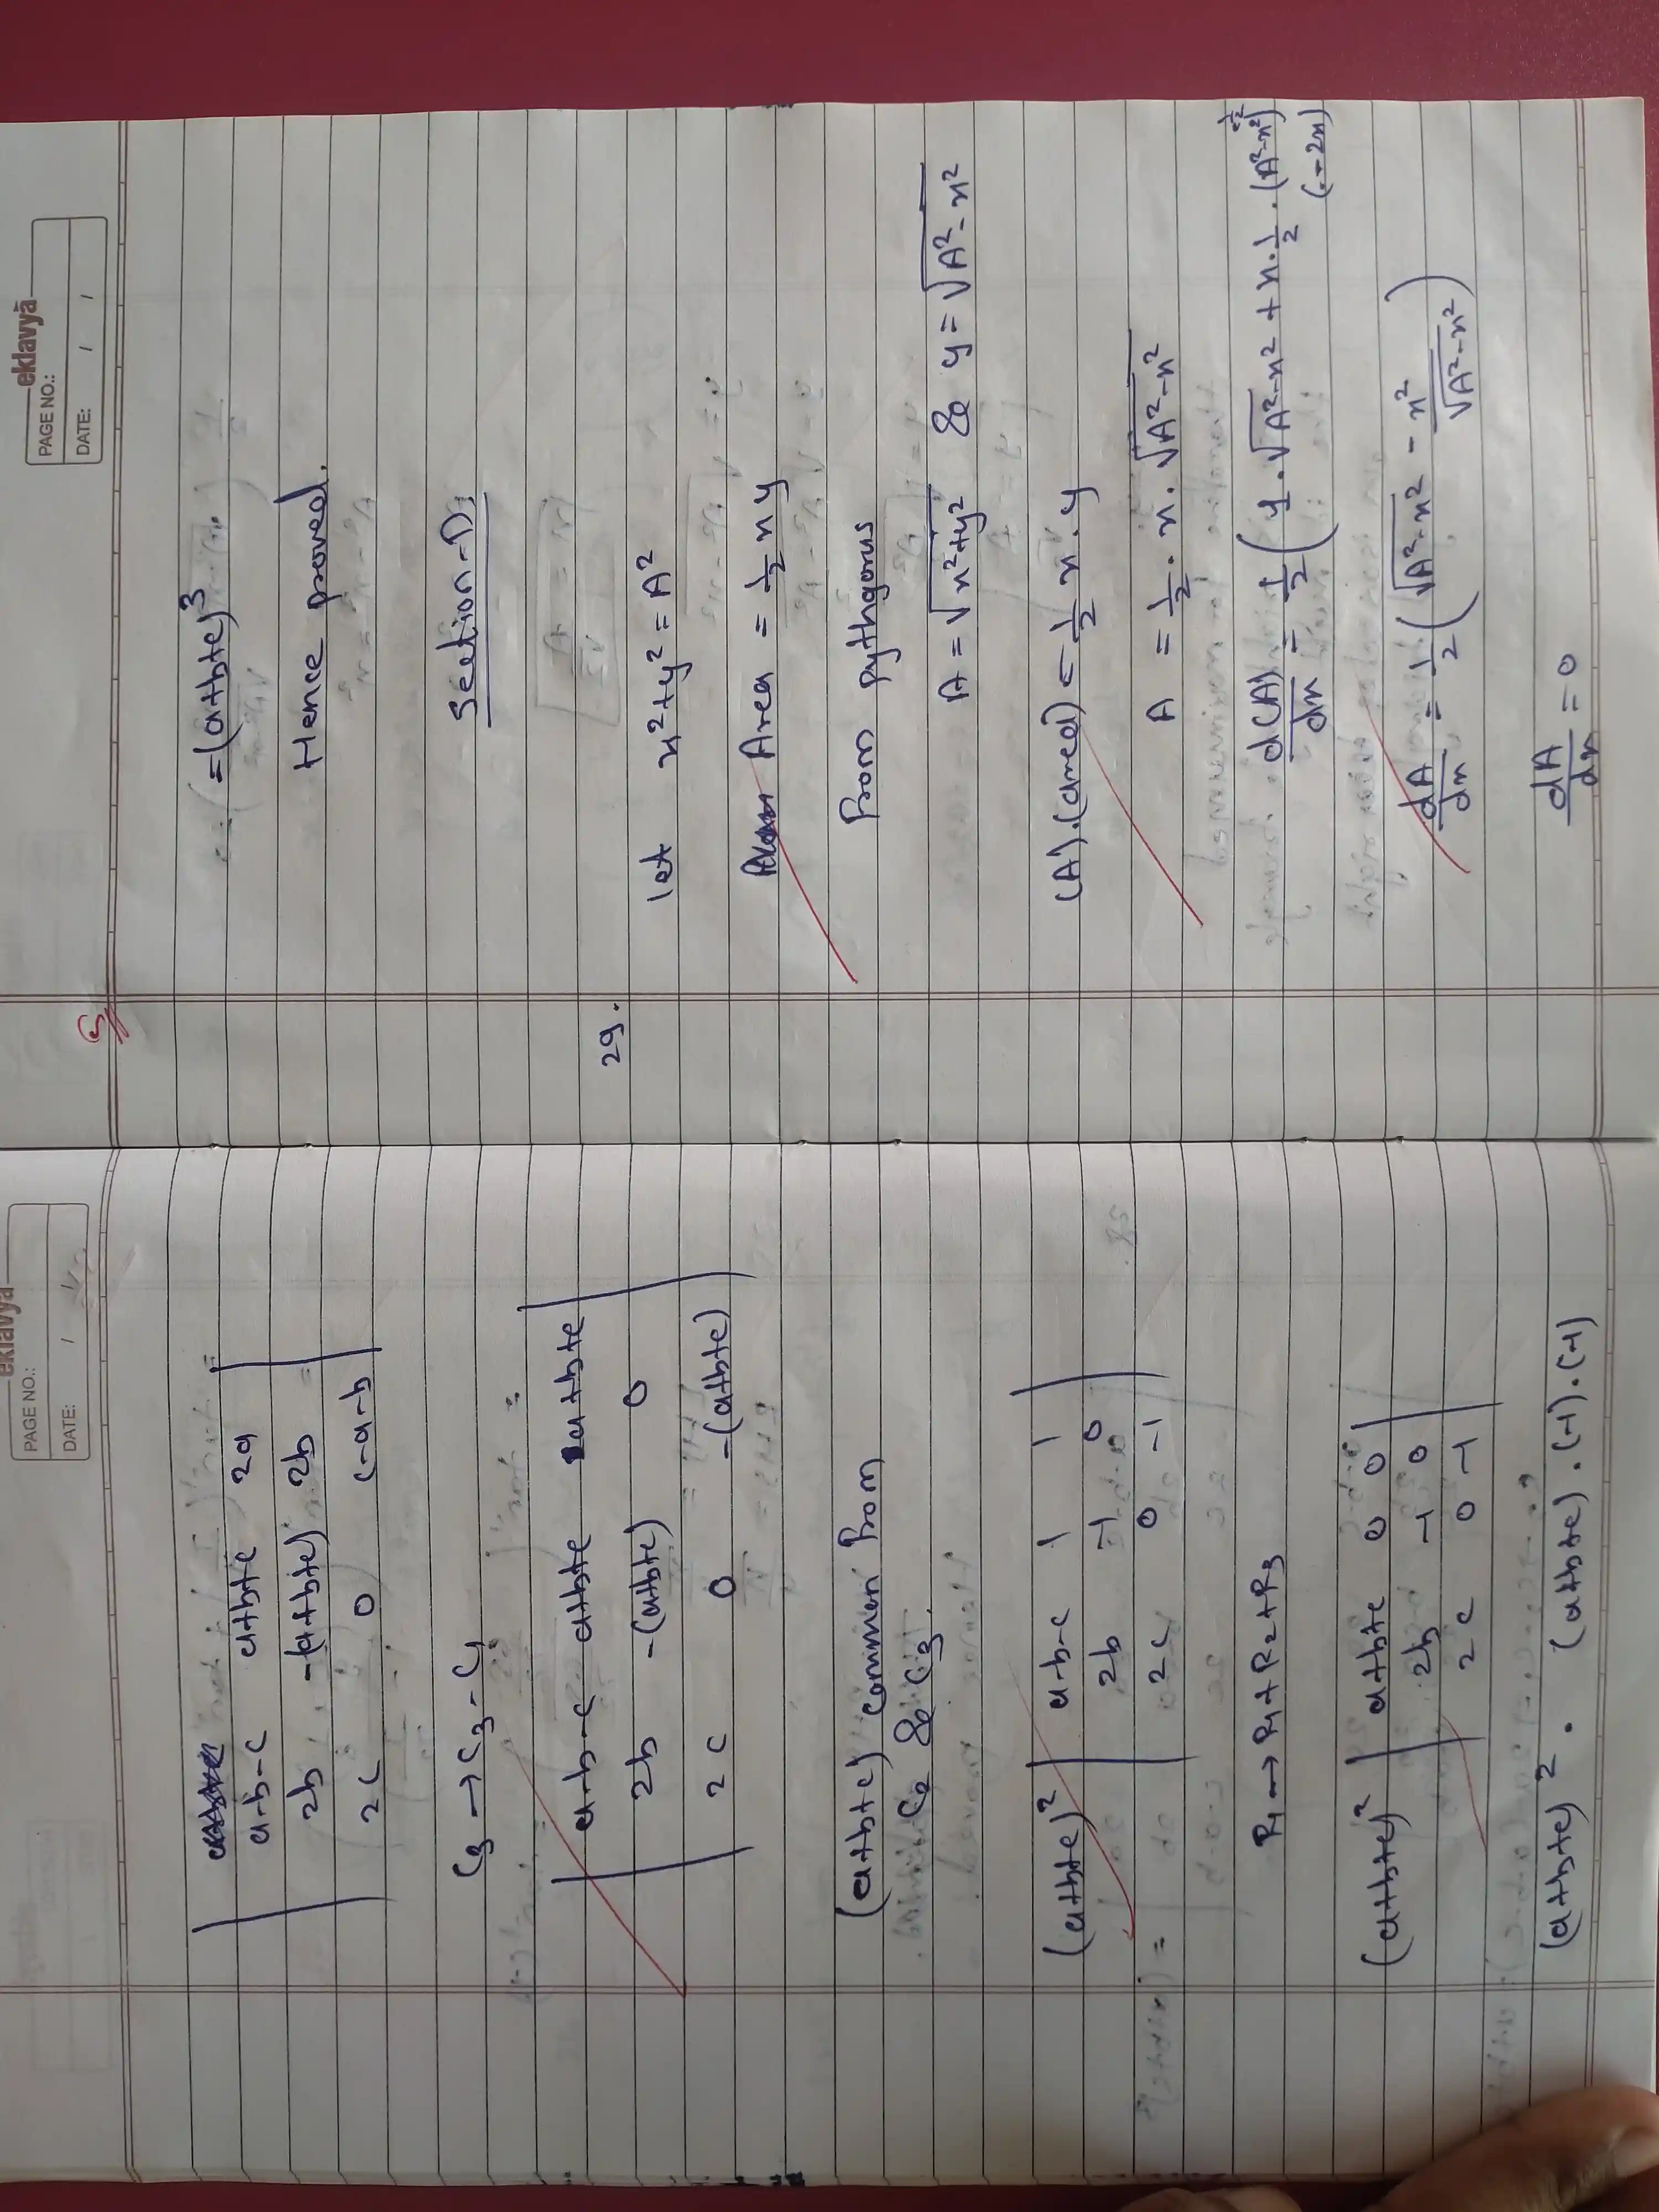 eklavya
PAGE NO.:
DATE: / /
a-b-c a+b+c 2a
2b -(a+b+c) 2b
2c 0 c-a-b
C3 → C3 - C1
a-b-c a+b+c a+b+c
2b -(a+b+c) 0
2c 0 -(a+b+c)
(a+b+c) common from
C2 & C3.
(a+b+c)² | a-b-c 1 1 |
2b -1 0
2c 0 -1
R1 → R1+R2+R3
(a+b+c)² | a+b+c 0 0 |
2b -1 0
2c 0 -1
(a+b+c)² . (a+b+c).(-1).(-1)
eklavya
PAGE NO.:
DATE: / /
=(a+b+c)³
Hence proved.
Section-D:
29.
let x²+y²=A²
Area = 1/2 xy
From pythgorus
A = √x²+y² & y = √A²-x²
(A).(area) = 1/2 x.y
A = 1/2 . x . √A²-x²
d(A)/dx = 1/2 ( 1.√A²-x² + x.1/2.(A²-x²)^-1/2
(-2x)
dA/dx = 1/2 ( √A²-x² - x²/√A²-x² )
dA/dx = 0